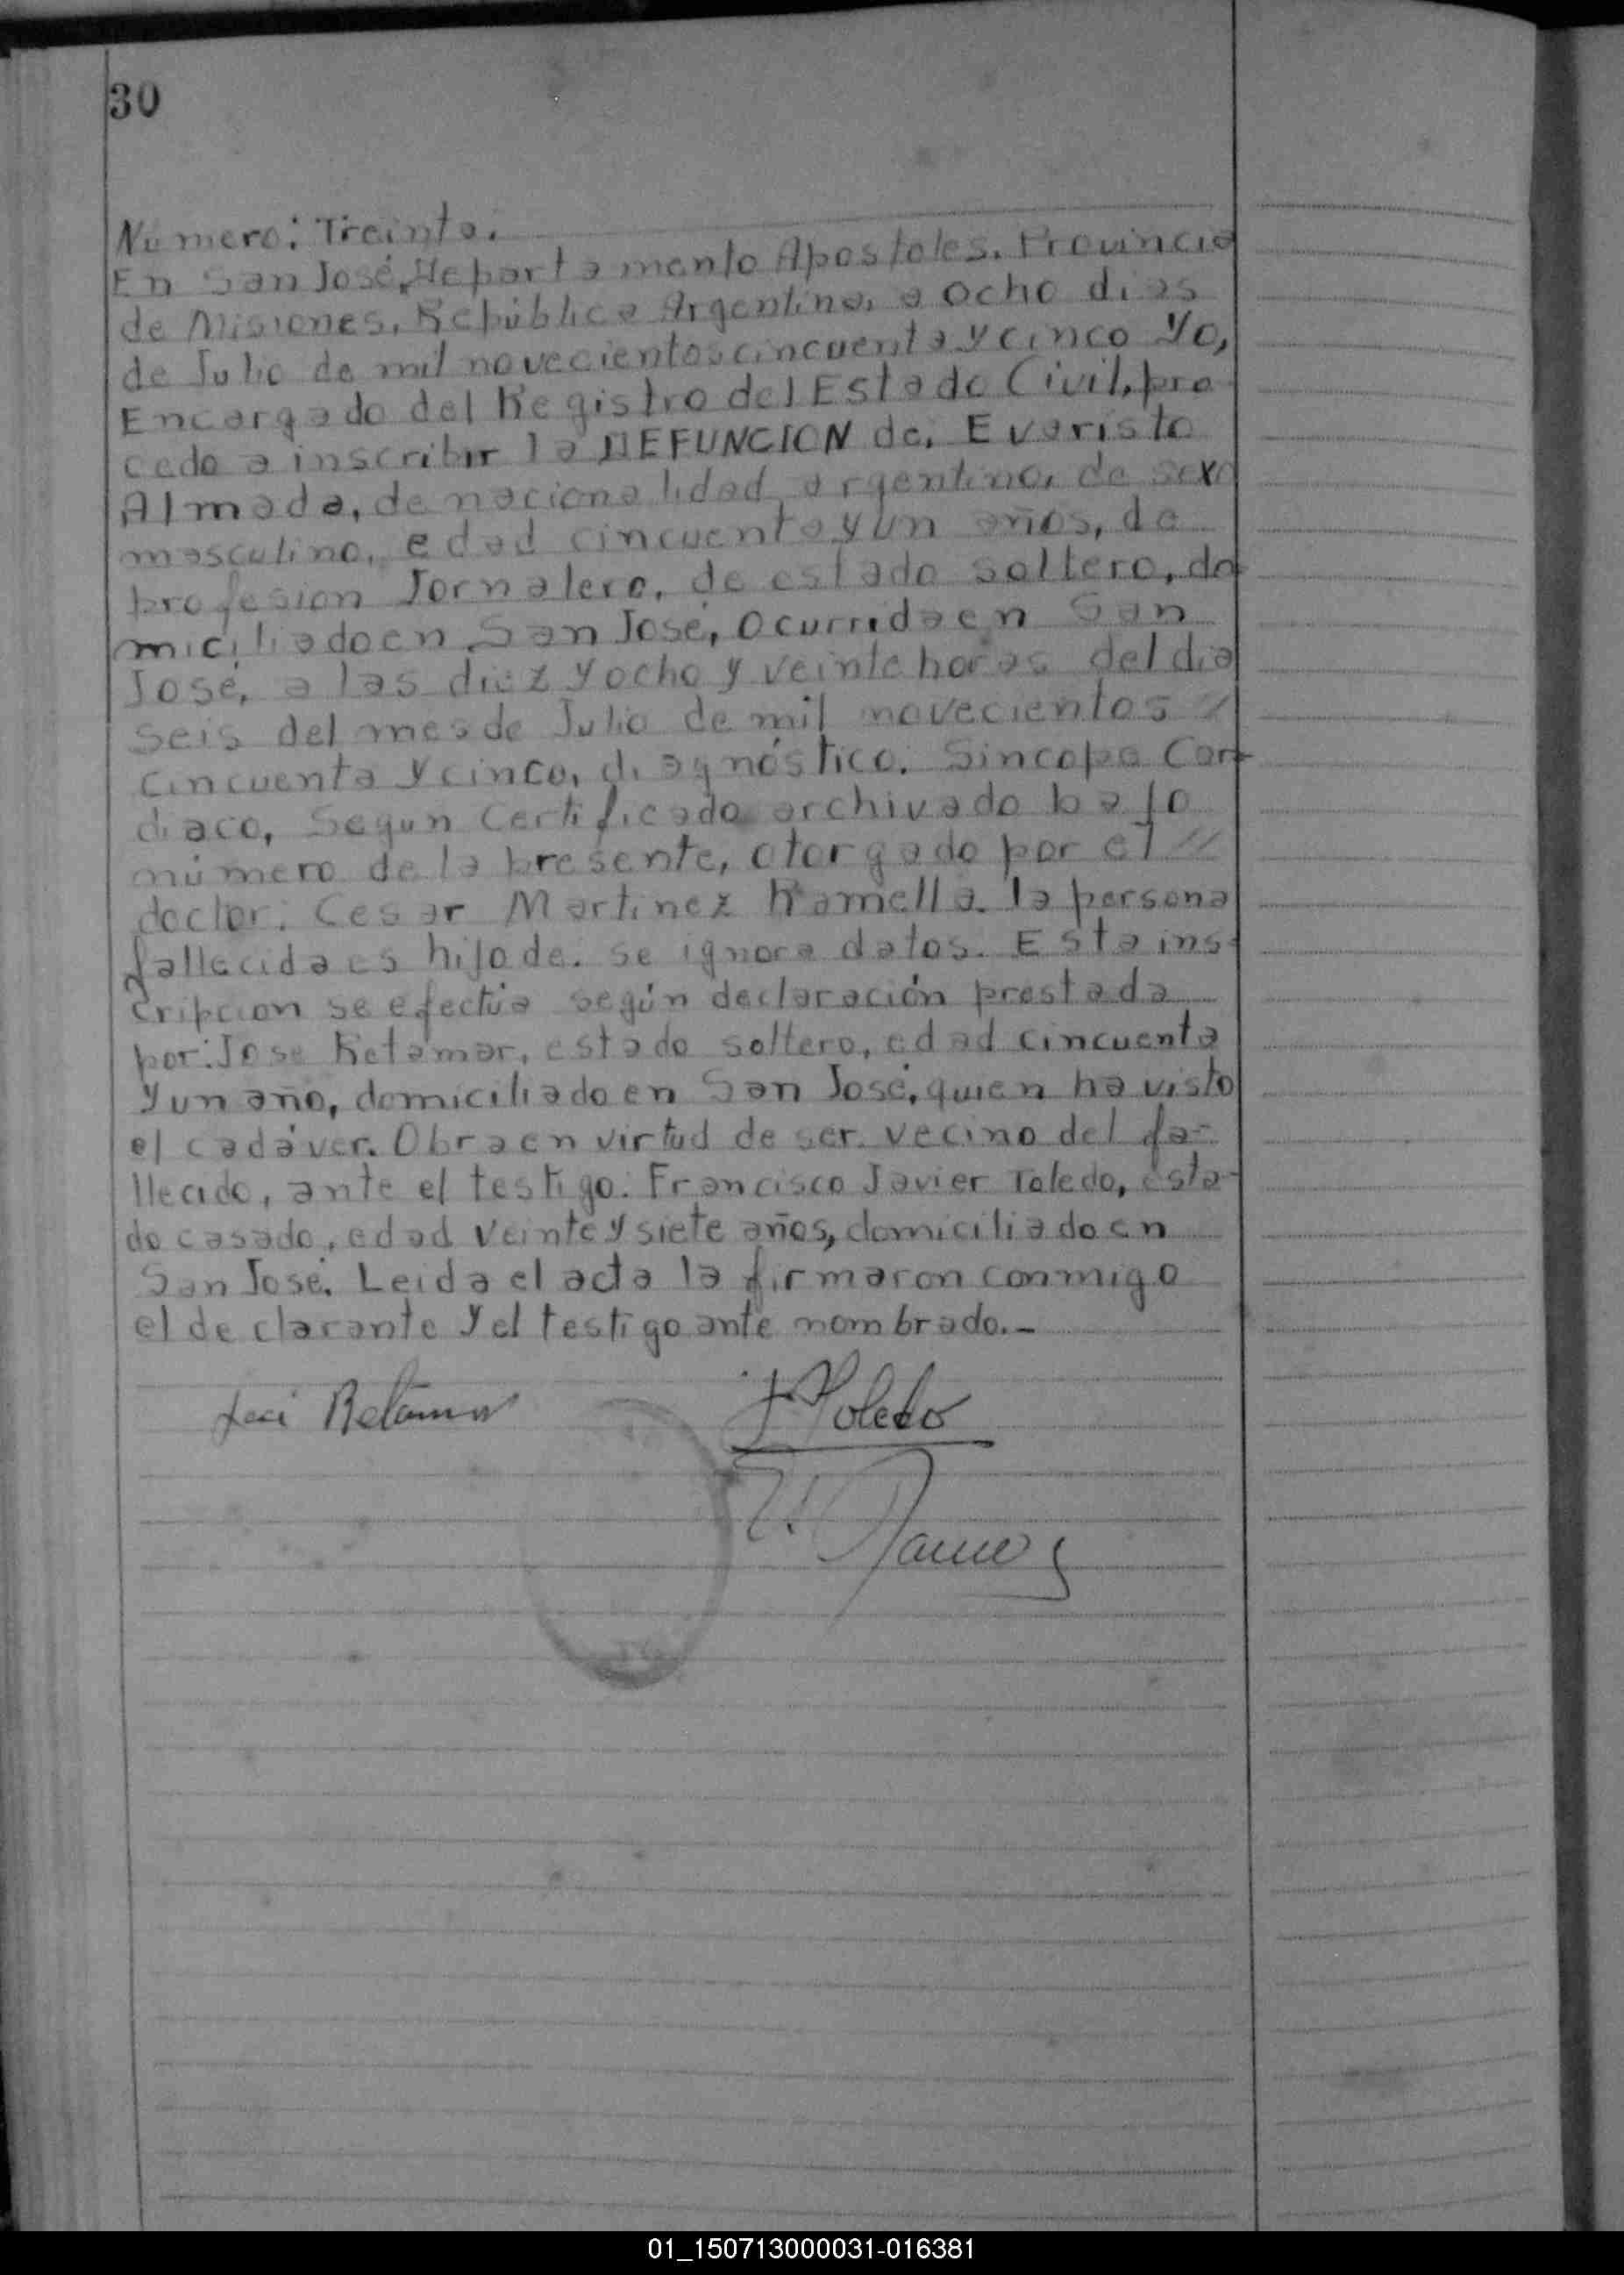 30
Número: Treinta.
En San José, Departamento Apostoles. Provincia
de Misiones, República Argentina, a ocho dias
de Julio de mil novecientos cincuenta y cinco Yo,
Encargado del Registro del Estado Civil, pro
cedo a inscribir la DEFUNCION de. Evaristo
Almada, de nacionalidad argentina, de sexo
masculino, edad cincuenta y un años, de
profesion Jornalero, de estado soltero, do
miciliado en San José, ocurrida en San
José, a las diez y ocho y veinte horas del dia
seis del mes de Julio de mil novecientos //
cincuenta y cinco, diagnóstico. Sincope Car-
diaco, Segun Certificado archivado bajo
número de la presente, otorgado por el //
doctor: Cesar Martinez Ramella. la persona
fallecida es hijo de. se ignora datos. Esta ins-
cripcion se efectúa según declaración prestada
por: Jose Retamar, estado soltero, edad cincuenta
y un año, domiciliado en San José, quien ha visto
el cadáver. Obra en virtud de ser vecino del fa-
llecido, ante el testigo: Francisco Javier Toledo, esta-
do casado, edad veinte y siete años, domiciliado en
San José. Leida el acta la firmaron conmigo
el declarante y el testigo ante nombrado.-
José Retamar
Toledo
Ramos
01_150713000031-016381